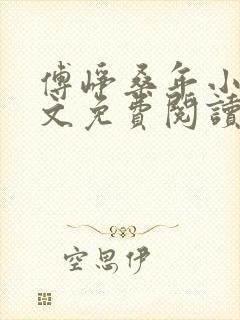 傅崢桑年小
文免費閱讀
空思伊